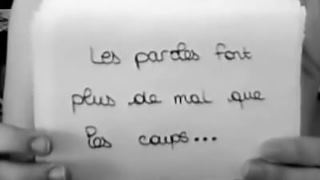 Les paroles font
plus de mal que
les coups...